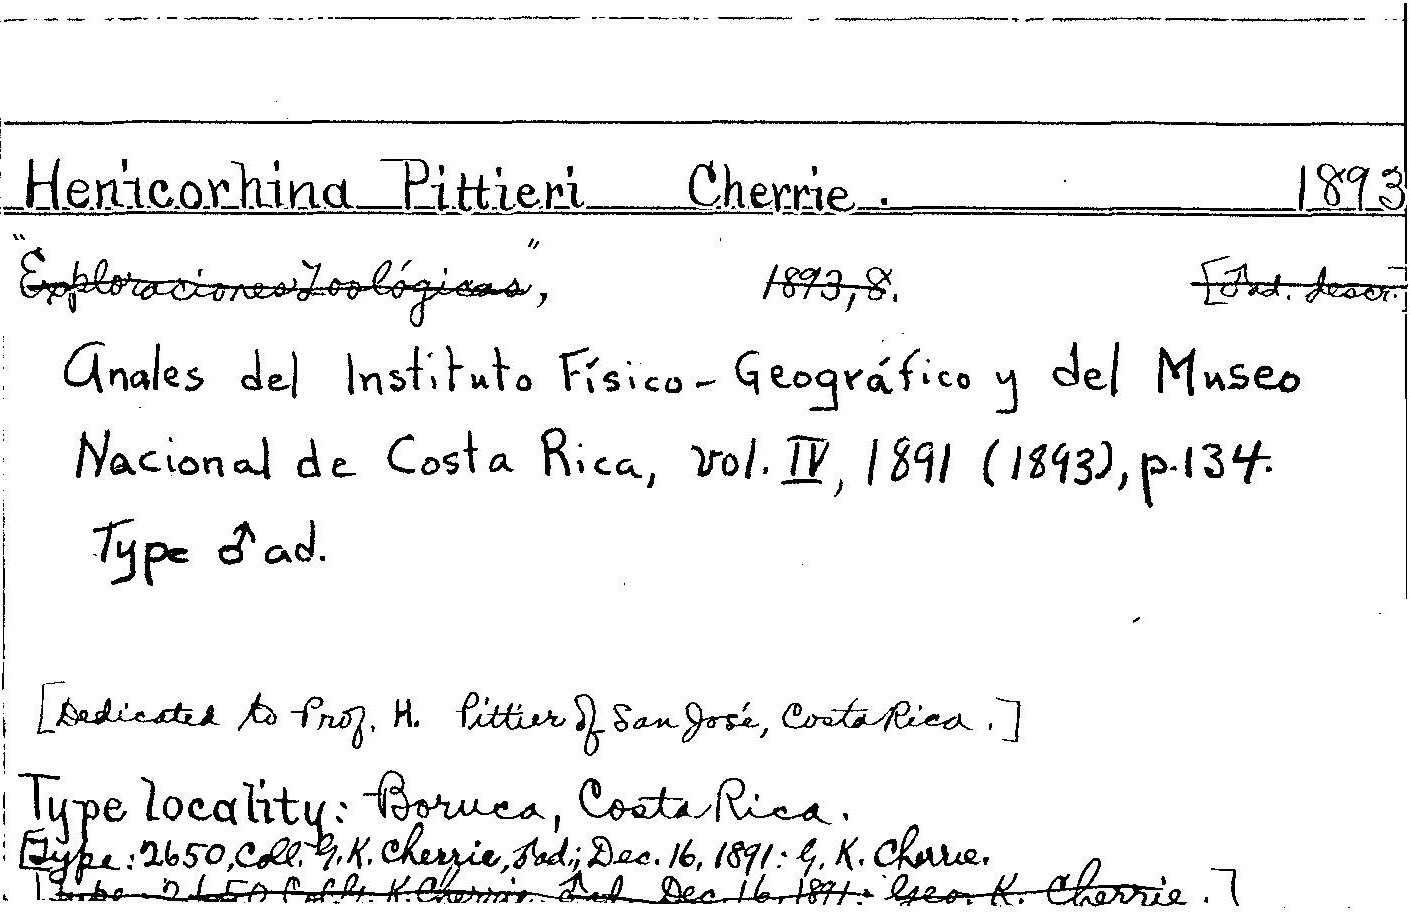 Henicorhina Pittieri Cherrie. 1893
"Exploraciones Zoológicas", 1893, 8. [♂ad. descr.]
Anales del Instituto Físico-Geográfico y del Museo
Nacional de Costa Rica, vol. IV, 1891 (1893), p. 134.
Type ♂ ad.
[Dedicated to Prof. H. Pittier of San José, Costa Rica.]
Type locality: Boruca, Costa Rica.
[Type: 2650, Coll. G. K. Cherrie, ♂ad.; Dec. 16, 1891: G. K. Cherrie.
[Type 2650 Coll. G. K. Cherrie ♂ad. Dec. 16, 1891: Geo. K. Cherrie.]